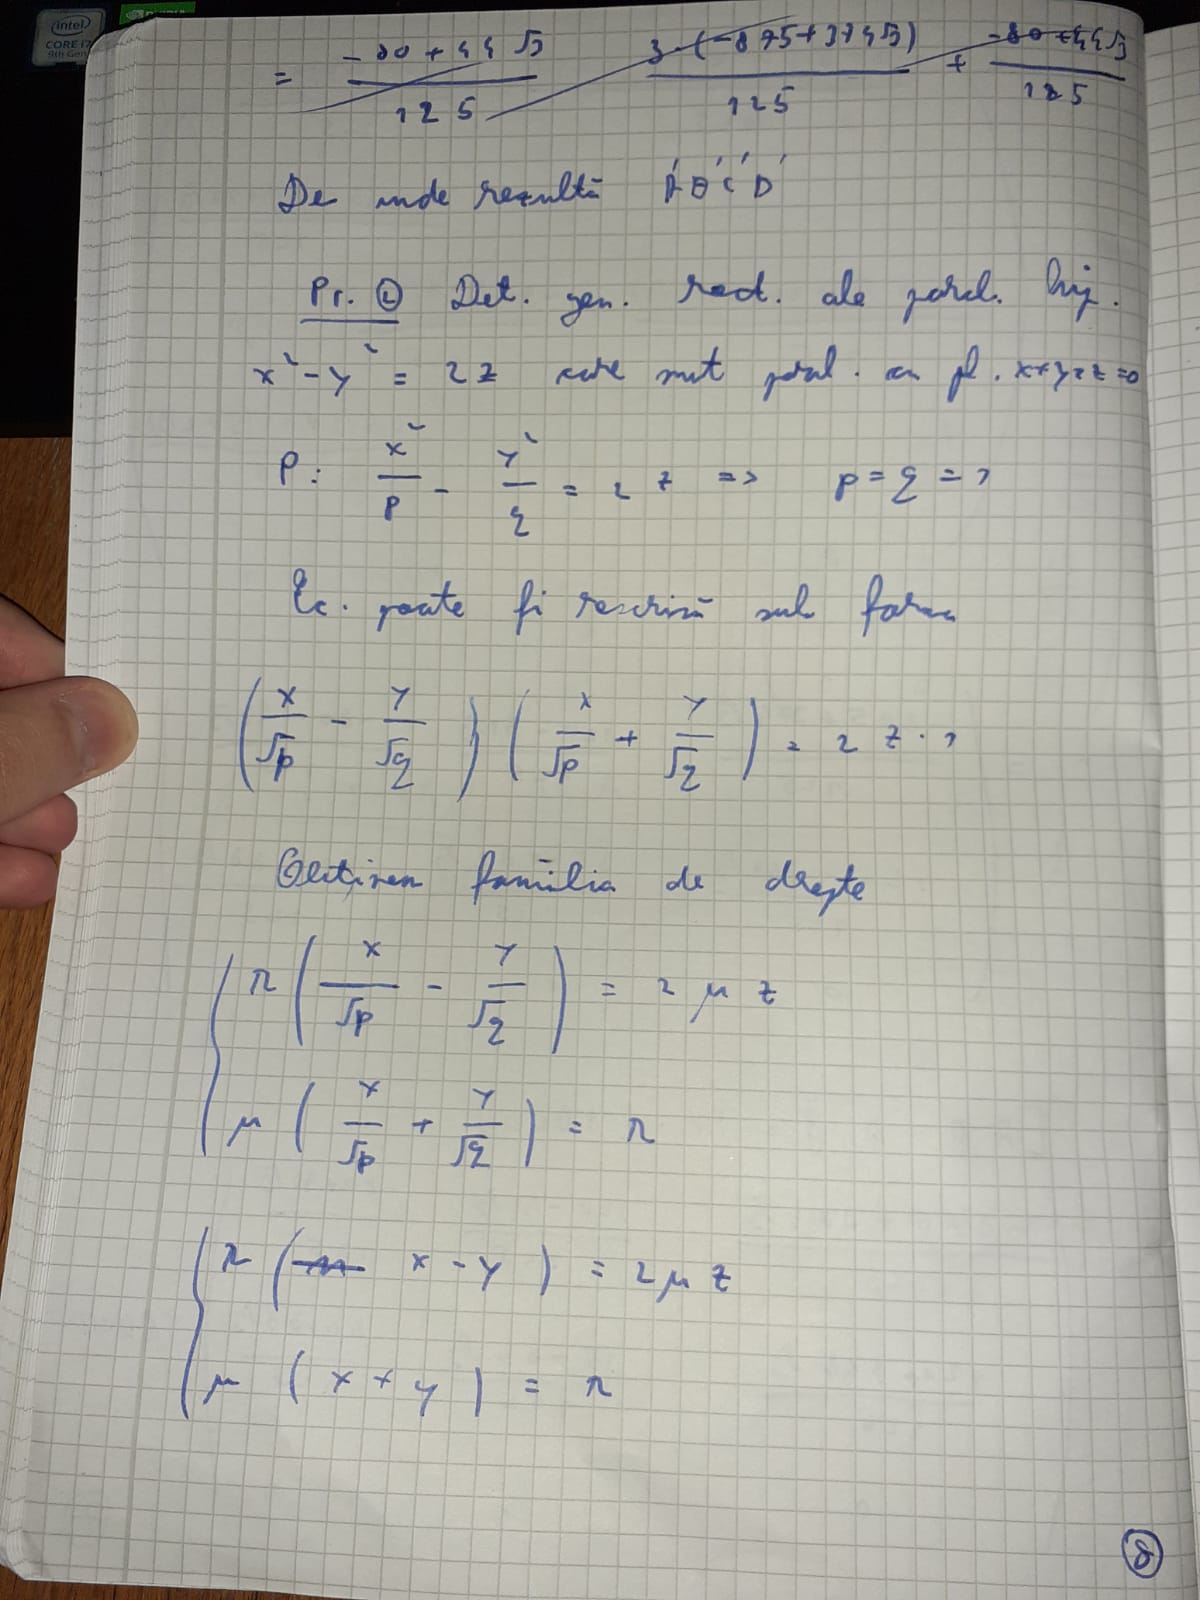 intel
CORE i7
9th Gen
= (-80+44√3)/125 3·(-875+374√3)/125 + (-80+44√3)/125
De unde rezultă A'B'C'D'
Pr. ② Det. gen. rect. ale parab. hip.
x² - y² = 2z care sunt paral. cu pl. x+y+z=0
P: x²/p - y²/q = 2z => p = q = 1
Ec. poate fi rescrisă sub forma
(x/√p - y/√q)(x/√p + y/√q) = 2z·1
Obținem familia de drepte
{ λ(x/√p - y/√q) = 2μz
μ(x/√p + y/√q) = λ
{ λ( x - y ) = 2μz
μ(x + y) = λ
⑧